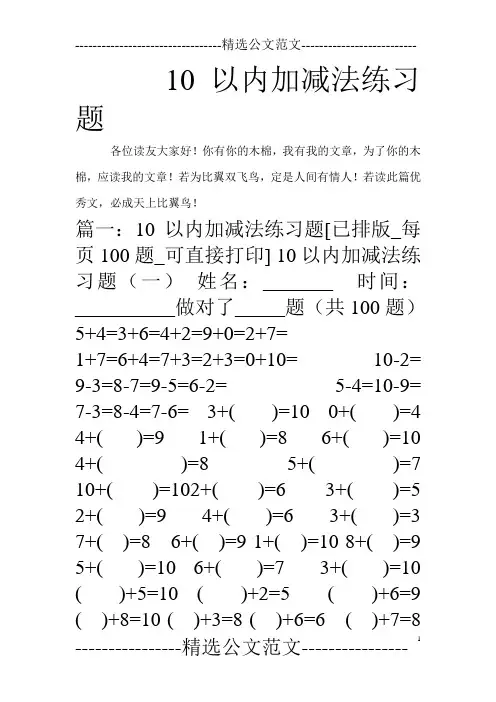 ---------------------------------精选公文范文--------------------------
10 以内加减法练习
题
各位读友大家好！你有你的木棉，我有我的文章，为了你的木
棉，应读我的文章！若为比翼双飞鸟，定是人间有情人！若读此篇优
秀文，必成天上比翼鸟！
篇一：10 以内加减法练习题[已排版_每
页100题_可直接打印] 10以内加减法练
习题（一） 姓名：_______ 时间：
__________做对了_____题（共100题）
5+4=3+6=4+2=9+0=2+7=
1+7=6+4=7+3=2+3=0+10= 10-2=
9-3=8-7=9-5=6-2= 5-4=10-9=
7-3=8-4=7-6= 3+( )=10 0+( )=4
4+( )=9 1+( )=8 6+( )=10
4+( )=8 5+( )=7
10+( )=102+( )=6 3+( )=5
2+( )=9 4+( )=6 3+( )=3
7+( )=8 6+( )=9 1+( )=10 8+( )=9
5+( )=10 6+( )=7 3+( )=10
( )+5=10 ( )+2=5 ( )+6=9
( )+8=10 ( )+3=8 ( )+6=6 ( )+7=8
----------------精选公文范文----------------
1